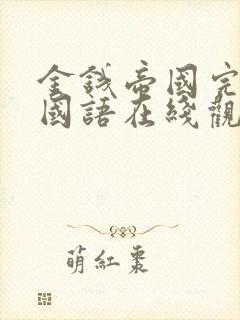 金錢帝國完
國語在綫觀
萌紅棗